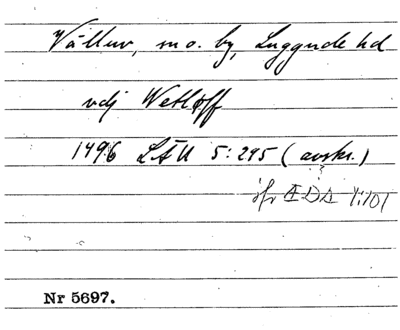 Vålluv, sn o. by, Luggude hd
vdj Wetløff
1496 LÄU 5:295 (avskr.)
jfr ÆDA 1:101
Nr 5697.